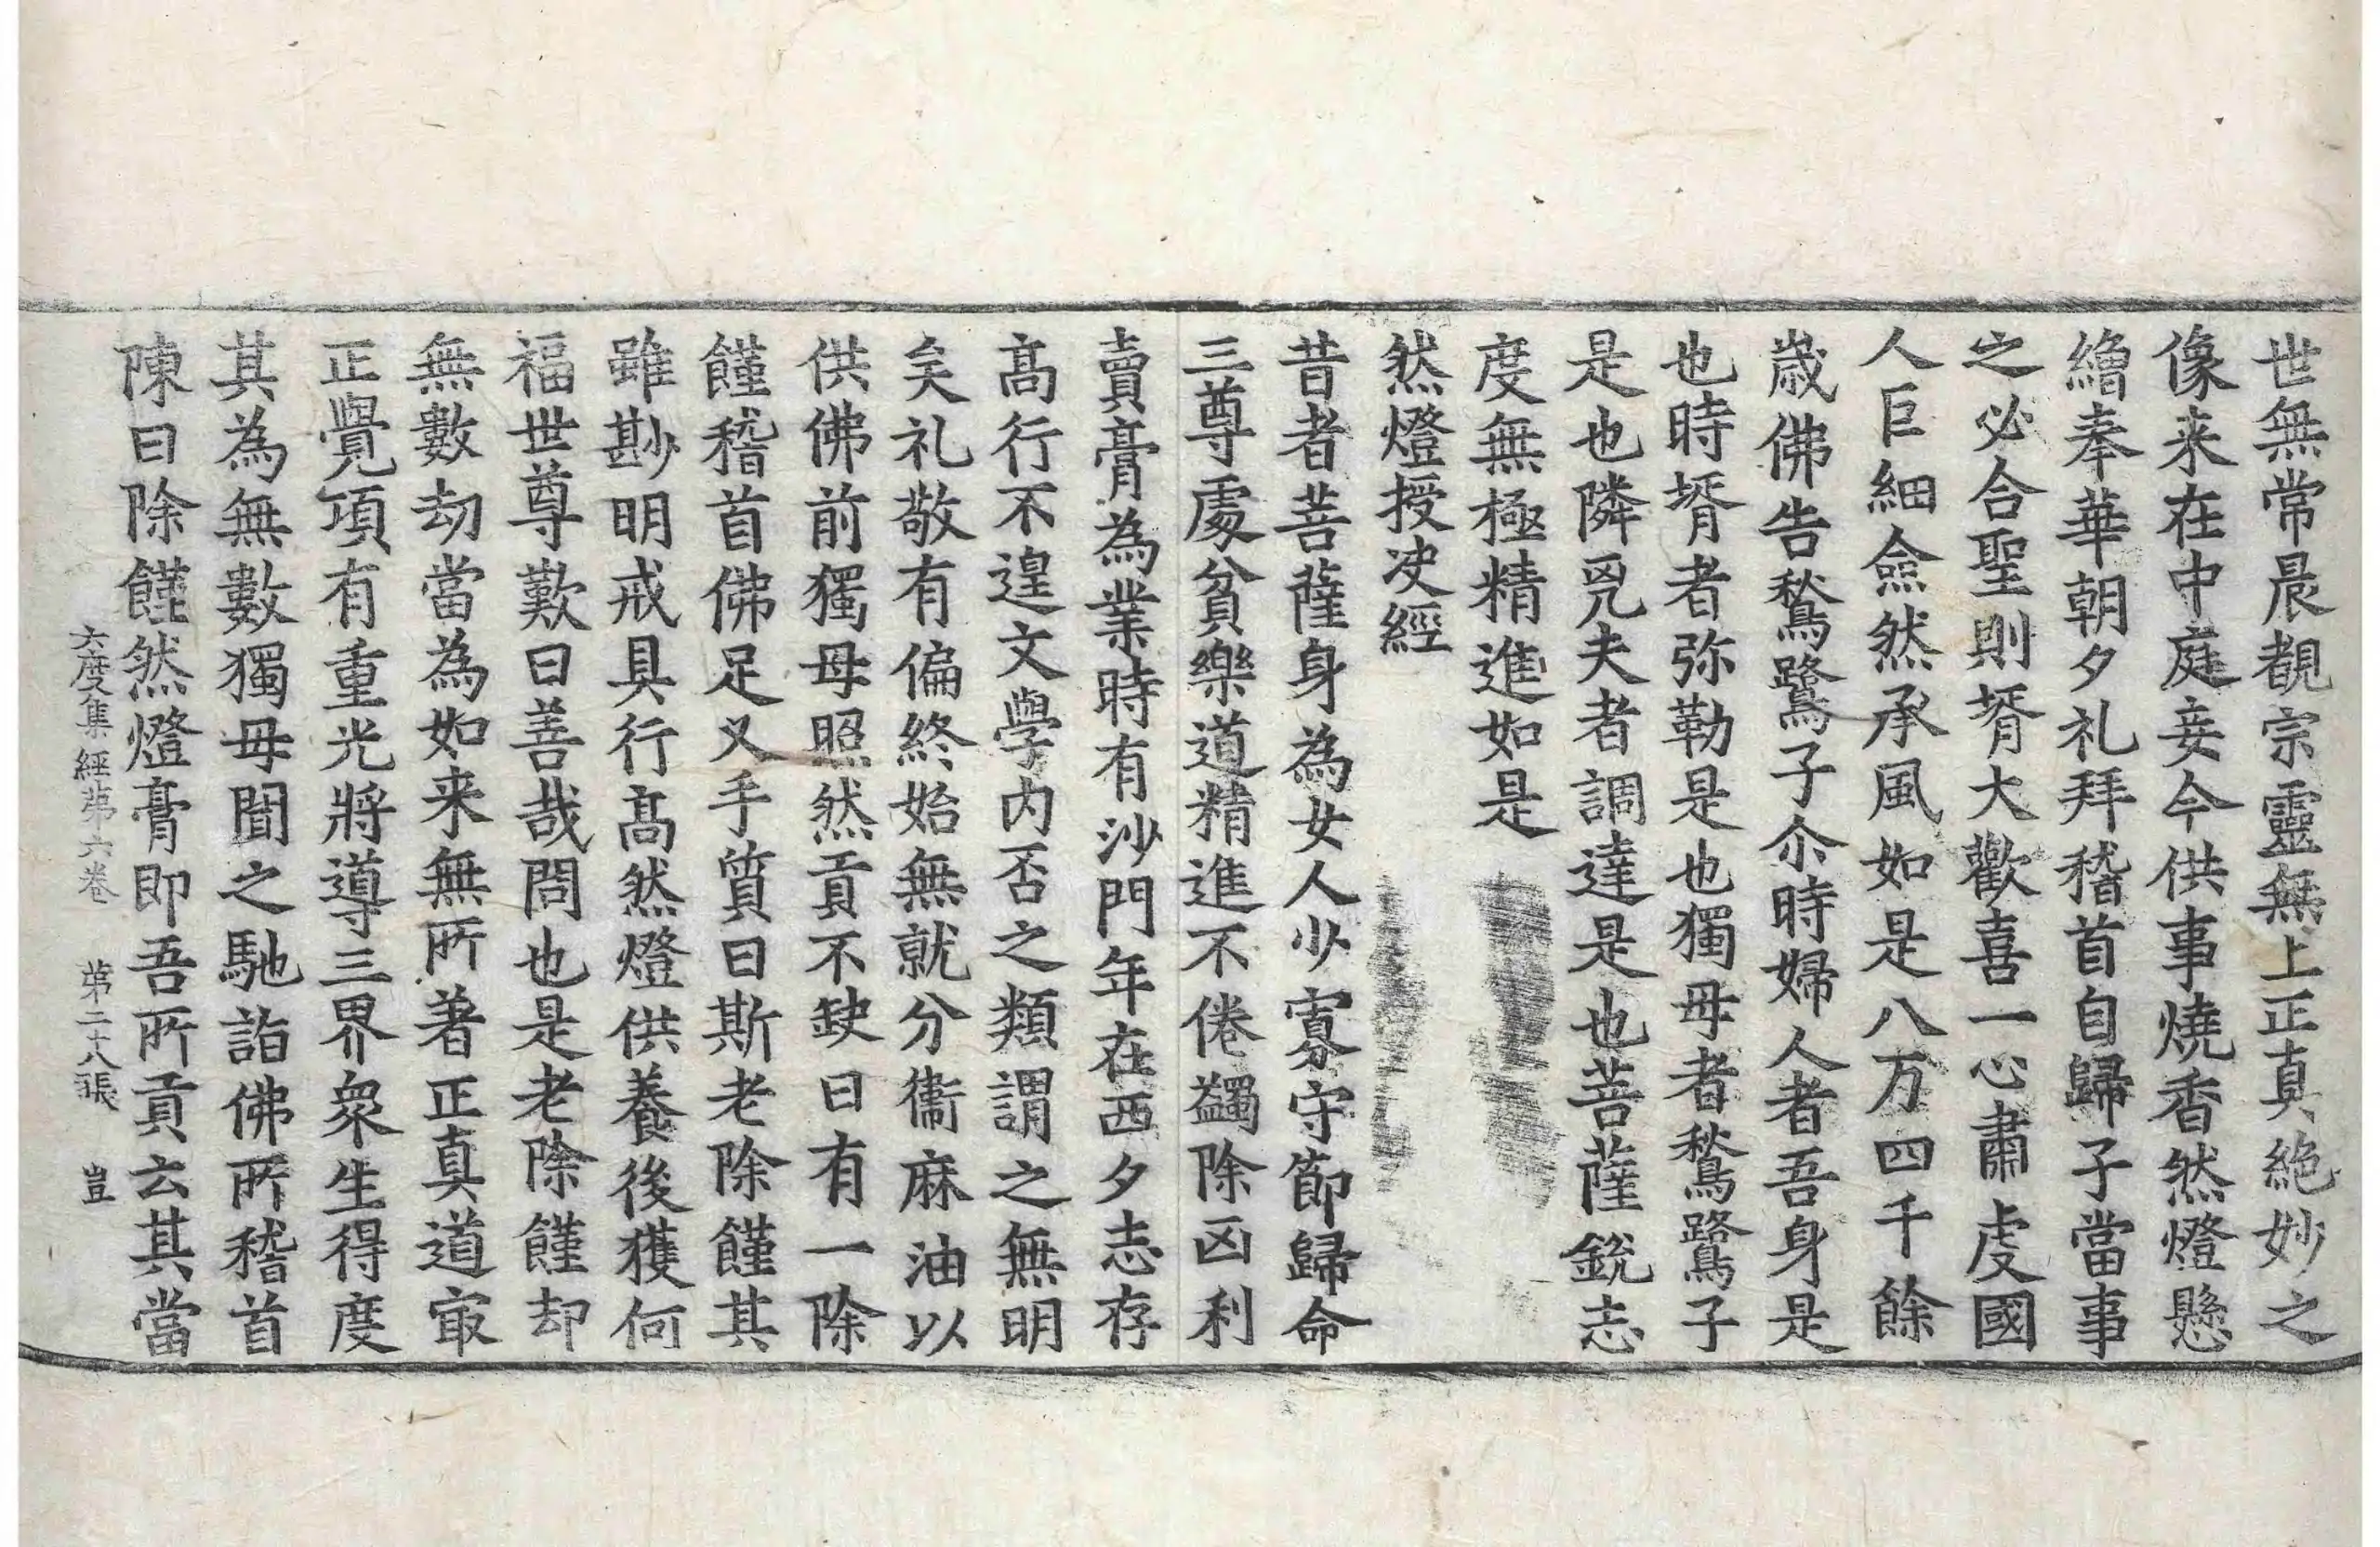 世無常晨覩宗靈無上正真絶妙之
像来在中庭妾今供事燒香然燈懸
繒奉華朝夕礼拜稽首自歸子當事
之必合聖則壻大歡喜一心肅虔國
人巨細僉然承風如是八万四千餘
歳佛告鶖鷺子尒時婦人者吾身是
也時壻者弥勒是也獨母者鶖鷺子
是也隣兇夫者調達是也菩薩銳志
度無極精進如是
然燈授决經
昔者菩薩身為女人少寡守節歸命
三尊處貧樂道精進不倦蠲除凶利
賣膏為業時有沙門年在西夕志存
髙行不遑文學内否之類謂之無明
矣礼敬有偏終始無就分衞麻油以
供佛前獨母照然貢不缺日有一除
饉稽首佛足叉手質曰斯老除饉其
雖尠明戒具行髙然燈供養後獲何
福世尊歎曰善哉問也是老除饉却
無數劫當為如来無所著正真道㝡
正覺項有重光將導三界衆生得度
其為無數獨母聞之馳詣佛所稽首
陳曰除饉然燈膏即吾所貢云其當
六度集經苐六卷 苐二十八張 豈